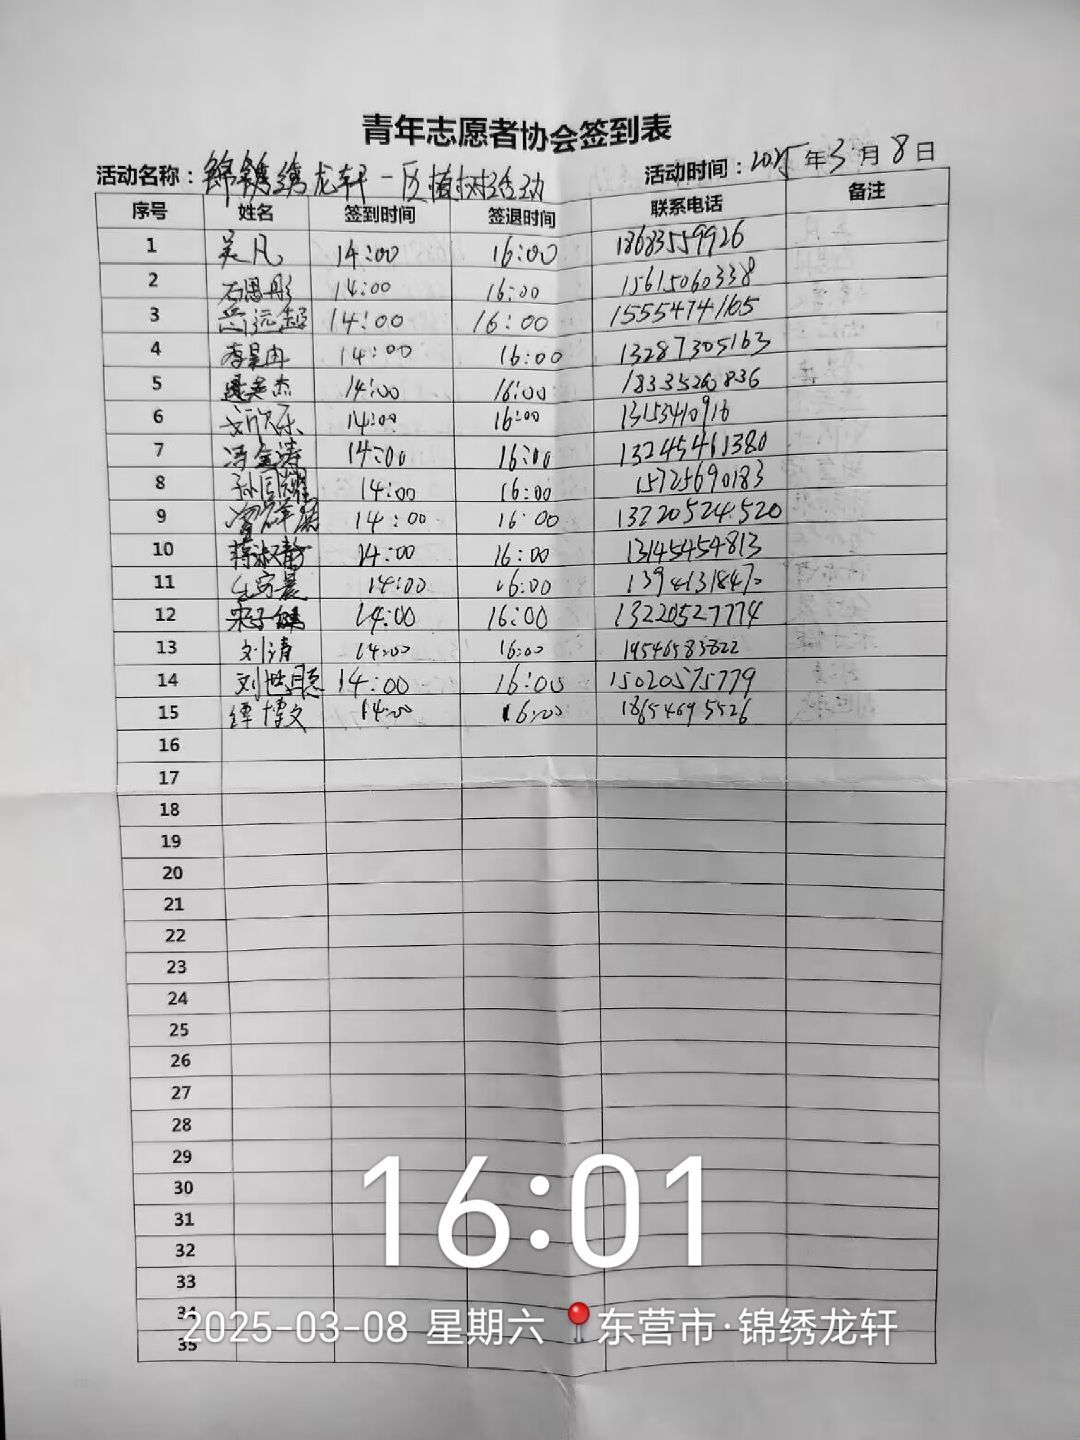 青年志愿者协会签到表
活动名称：锦绣龙轩一区植树活动 活动时间：2025年3月8日
序号 姓名 签到时间 签退时间 联系电话 备注
1 吴凡 14:00 16:00 18683559926
2 石思彤 14:00 16:00 15615060338
3 岳沅超 14:00 16:00 15554741165
4 李昱冉 14:00 16:00 13287305163
5 14:00 16:00 18335260836
6 文欣乐 14:00 16:00 13153410916
7 冯金涛 14:00 16:00 13245461380
8 孙国耀 14:00 16:00 15725690183
9 14:00 16:00 13220524520
10 蒋淑静 14:00 16:00 13145454813
11 14:00 16:00
12 14:00 16:00 13220527774
13 刘清 14:00 16:00 19546583822
14 刘世聪 14:00 16:00 15020575779
15 谭博文 14:00 16:00 18654695526
16
17
18
19
20
21
22
23
24
25
26
27
28
29
30
31
32
33
34
35
16:01
2025-03-08 星期六 东营市·锦绣龙轩